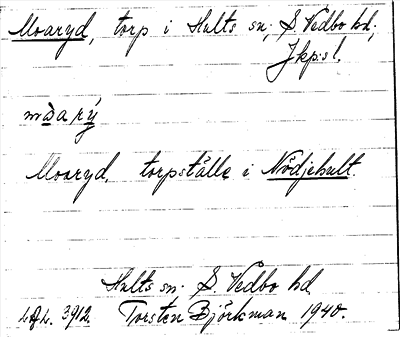 Moaryd, torp i Hults sn; S. Vedbo hd;
Jkp:s l.
Moaryd, torpställe i Nödjehult.
Hults sn. S. Vedbo hd
3912. Torsten Björkman 1940.